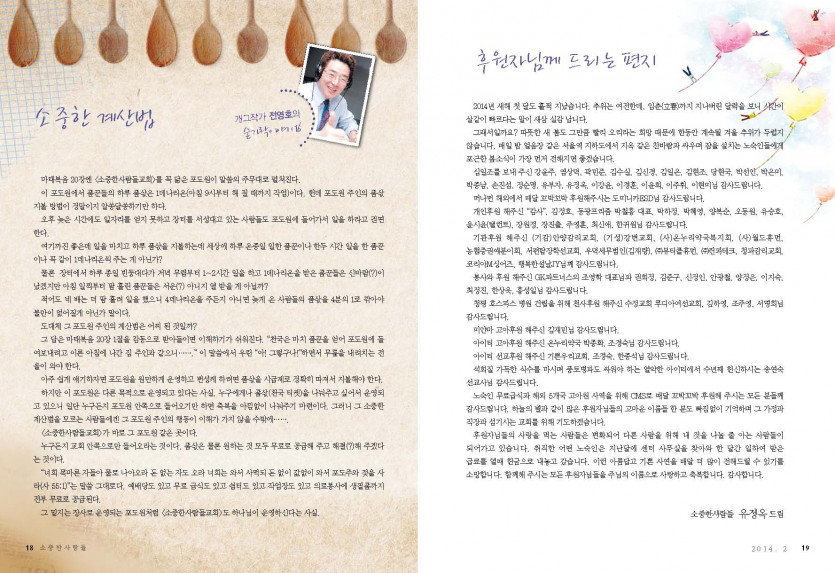 소중한 계산법
개그작가 전영호의
숟가락이야기 16
마태복음 20장엔 <소중한사람들교회>를 꼭 닮은 포도원이 말씀의 주무대로 펼쳐진다.
이 포도원에서 품꾼들의 하루 품삯은 1데나리온(아침 9시부터 해 질 때까지 작업)이다. 헌데 포도원 주인의 품삯
지불 방법이 정말이지 알쏭달쏭하기만 하다.
오후 늦은 시간에도 일자리를 얻지 못하고 장터를 서성대고 있는 사람들도 포도원에 들어가서 일을 하라고 권면
한다.
여기까진 좋은데 일을 마치고 하루 품삯을 지불하는데 세상에 하루 온종일 일한 품꾼이나 한두 시간 일을 한 품꾼
이나 꼭 같이 1데나리온씩 주는 게 아닌가?
물론 장터에서 하루 종일 빈둥대다가 저녁 무렵부터 1~2시간 일을 하고 1데나리온을 받은 품꾼들은 신바람(?)이
났겠지만 아침 일찍부터 땀 흘린 품꾼들은 서운(?) 아니지 열 받을 게 아닐까?
적어도 네 배는 더 땀 흘려 일을 했으니 4데나리온을 주든지 아니면 늦게 온 사람들의 품삯을 4분의 1로 깎아야
불만이 없어질게 아닌가 말이다.
도대체 그 포도원 주인의 계산법은 어찌 된 것일까?
그 답은 마태복음 20장 1절을 감동으로 받아들이면 이해하기가 쉬워진다. "천국은 마치 품꾼을 얻어 포도원에 들
여보내려고 이른 아침에 나간 집 주인과 같으니……," 이 말씀에서 우린 "아! 그렇구나!"하면서 무릎을 내려치는 전
율이 와야 한다.
아주 쉽게 얘기하자면 포도원을 원만하게 운영하고 번성케 하려면 품삯을 시급제로 정확히 따져서 지불해야 한다.
하지만 이 포도원은 다른 목적으로 운영되고 있다는 사실. 누구에게나 품삯(천국 티켓)을 나눠주고 싶어서 운영되
고 있으니 일단 누구든지 포도원 안쪽으로 들어오기만 하면 축복을 아낌없이 나눠주기 마련이다. 그러니 그 소중한
계산법을 모르는 사람들에겐 그 포도원 주인의 행동이 이해가 가지 않을 수밖에…….
<소중한사람들교회>가 바로 그 포도원 같은 곳이다.
누구든지 교회 안쪽으로만 들어오라는 것이다. 품삯은 물론 원하는 것 모두 무료로 공급해 주고 해결(?)해 주겠다
는 것이다.
"너희 목마른 자들아 물로 나아오라 돈 없는 자도 오라 너희는 와서 사먹되 돈 없이 값없이 와서 포도주와 젖을 사
라(사 55:1)"는 말씀 그대로다. 예배당도 있고 무료 급식도 있고 쉼터도 있고 작업장도 있고 의료봉사에 생필품까지
전부 무료로 공급된다.
그 밑지는 장사로 운영되는 포도원처럼 <소중한사람들교회>도 하나님이 운영하신다는 사실.
18 소중한사람들
후원자님께 드리는 편지
2014년 새해 첫 달도 훌쩍 지났습니다. 추위는 여전한데, 입춘(立春)까지 지나버린 달력을 보니 시간이
살같이 빠르다는 말이 새삼 실감 납니다.
그래서일까요? 따뜻한 새 봄도 그만큼 빨리 오리라는 희망 때문에 한동안 계속될 겨울 추위가 두렵지
않습니다. 매일 밤 얼음장 같은 서울역 지하도에서 지옥 같은 찬바람과 싸우며 잠을 설치는 노숙인들에게
포근한 봄소식이 가장 먼저 전해지면 좋겠습니다.
십일조를 보내 주신 강윤주, 염상덕, 곽민준, 김수실, 김신정, 김일은, 김현코, 당현국, 박선인, 박은미,
박종남, 손잔심, 장순영, 유부자, 유정옥, 이강윤, 이경훈, 이윤희, 이주휘, 이현미님 감사드립니다.
머나먼 해외에서 매달 꼬박꼬박 후원해주시는 도미니카ESD님 감사드립니다.
개인후원 해주신 "감사", 김정호, 동광프라즘 박철홍 대표, 박하정, 박혜영, 양복순, 오동원, 유승호,
윤시윤(탤런트), 장원경, 장진출, 주영훈, 최신애, 한귀원님 감사드립니다.
기관후원 해주신 (기감)안양감리교회, (기성)강변교회, (사)온누리약국복지회, (사)월드휴먼,
농협중권예분이회, 서련탑장학선교회, 우덕세무법인(김재명), ㈜뷰티콜휴먼, ㈜칸파테크, 청파감리교회,
코리아M싱어즈, 행복한설날JY님께 감사드립니다.
봉사와 후원 해주신 GK파트너스의 조영학 대표님과 권희정, 김준구, 신정인, 안광철, 양정은, 이지숙,
최경진, 한상욱, 홍성일님 감사드립니다.
청평 호스피스 병원 건립을 위해 헌사후원 해주신 수정교회 루디아여선교회, 김하영, 조주영, 서명희님
감사드립니다.
미얀마 고아후원 해주신 김재민님 감사드립니다.
아이티 고아후원 해주신 온누리약국 박종화, 조경숙님 감사드립니다.
아이티 선교후원 해주신 기쁜우리교회, 조경숙, 한종석님 감사드립니다.
석회질 가득한 식수를 마시며 풍토병과도 싸워야 하는 열악한 아이티에서 수년째 헌신하시는 송영숙
선교사님 감사드립니다.
노숙인 무료급식과 해외 5개국 고아원 사역을 위해 CMS로 매달 꼬박꼬박 후원해 주시는 모든 분들께
감사드립니다. 하늘의 별과 같이 많은 후원자님들의 고마운 이름들 한 분도 빠짐없이 기억하며 그 가정과
직장과 섬기시는 교회를 위해 기도하겠습니다.
후원자님들의 사랑을 먹는 사람들은 변화되어 다른 사람을 위해 내 것을 나눌 줄 아는 사람들이
되어가고 있습니다. 취직한 어떤 노숙인은 지난달에 센터 사무실을 찾아와 한 달간 일하며 받은
급료를 열매 헌금으로 내놓고 갔습니다. 이런 아름답고 기쁜 사연을 매달 더 많이 전해드릴 수 있기를
소망합니다. 함께해 주시는 모든 후원자님들을 주님의 이름으로 사랑하고 축복합니다. 감사합니다.
소중한사람들 유정옥 드림
2014. 2 19